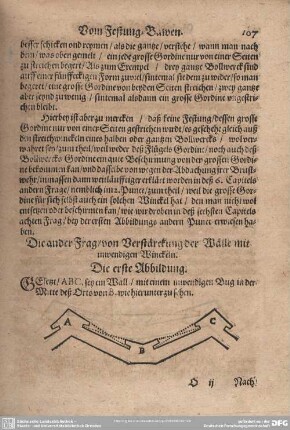 Vom Festung-Bawen. 107
besser schicken und reymen / als die gantze / verstehe / wann man nach
dem / was oben gemelt / ein jede grosse Gordine nur von einer Seiten
zu streichen begert / Als zum Exempel / drey gantze Bollwerck sind
auff einer fünffeckigen Form zuviel / sintemal sie dem zu wider / so man
begeret / eine grosse Gordine von beyden Seiten streichen / zwey gantz
aber seynd zu wenig / sintemal alsdann ein grosse Gordine ungestri-
chen bleibt.
Hierbey ist aber zu mercken / daß keine Festung / dessen grosse
Gordine nur von einer Seiten gestrichen wurd / es geschehe gleich auß
den streichwinckeln eines halben oder gantzen Bollwercks / wol ver-
wahret sey
Bollwercks Gordine ein gute Beschirmung von der grossen Gordi-
ne bekommen kan / und dasselbe von wegen der Abdachung der Brust-
wehr / inmassen dann weitläuffiger erklärt worden in deß 6. Capitels
andern Frage / nemblich im 2. Punct / zum theil / weil die grosse Gor-
dine für sich selbst auch ein solchen Winckel hat / den man nicht wol
entsetzen oder beschirmen kan / wie wir droben in deß sechsten Capitels
achten Frag / bey der ersten Abbildungs andern Punct erwiesen ha-
ben.
Die ander Frag / von Verstärckung der Wälle mit
inwendigen Winckeln.
Die erste Abbildung.
GEsetzt / ABC, sey ein Wall / mit einem inwendigen Bug in der
Mitte deß Orts von B. wie hierunter zu sehen.
A B C
O ij Nach